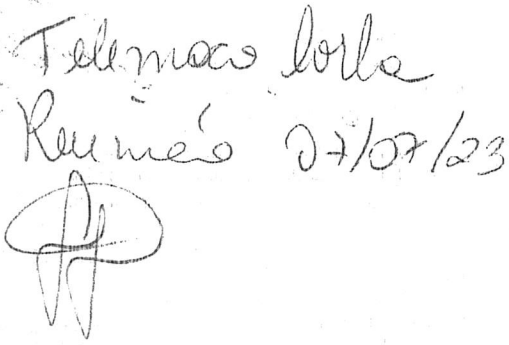 Telemaco Borba
Reunião 07/07/23